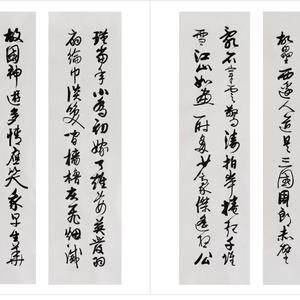 故壘西邊人道是三國周郎赤壁
亂石穿空驚濤拍岸捲起千堆
雪江山如畫一時多少豪傑遙想公
瑾當年小喬初嫁了雄姿英發羽
扇綸巾談笑間檣櫓灰飛煙滅
故國神遊多情應笑我早生華